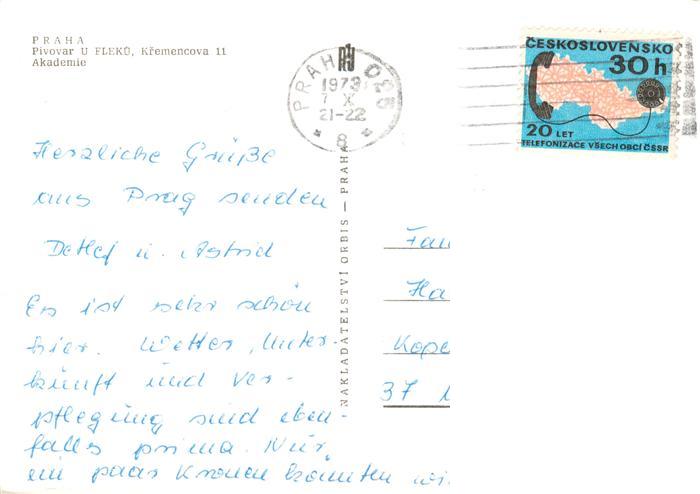 PRAHA
Pivovar U FLEKŮ, Křemencova 11
Akademie
PRAHA 036
1973
7 X
21-22
8
ČESKOSLOVENSKO
30h
20 LET
TELEFONIZACE VŠECH OBCÍ ČSSR
NAKLADATELSTVÍ ORBIS — PRAHA
Herzliche Grüße
aus Prag senden
Detlef u. Astrid
Es ist sehr schön
hier. Wetter, Unter-
künft und Ver-
pflegung sind eben-
falls prima. Nur
ein paar Kronen könnten wi
Fam
Ha
Kope
37